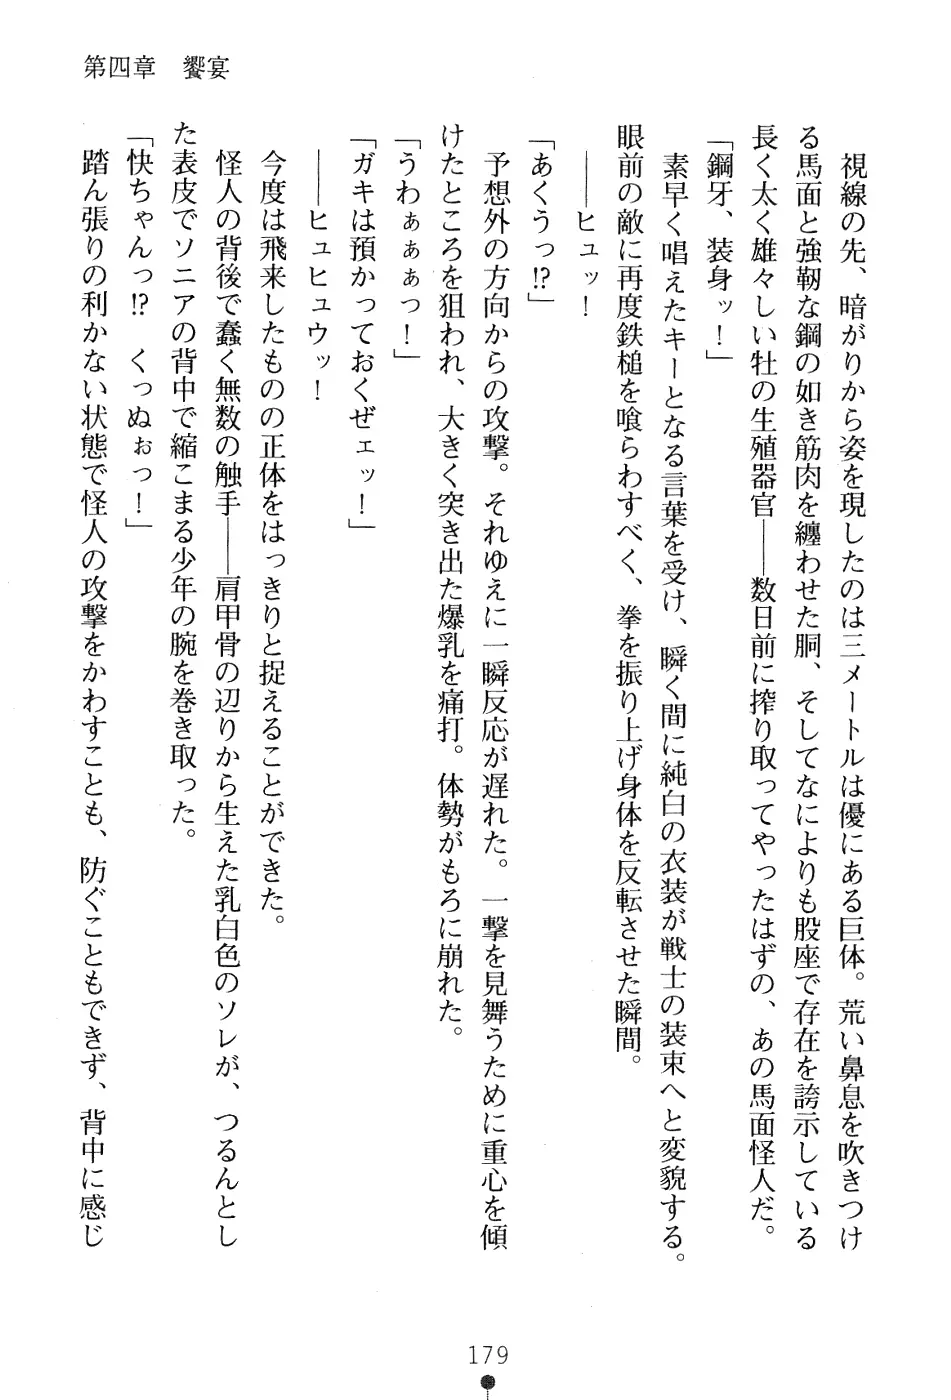 第四章　饗宴
視線の先、暗がりから姿を現したのは三メートルは優にある巨体。荒い鼻息を吹きつけ
る馬面と強靭な鋼の如き筋肉を纏わせた胴、そしてなによりも股座で存在を誇示している
長く太く雄々しい牡の生殖器官――数日前に搾り取ってやったはずの、あの馬面怪人だ。
「鋼牙、装身ッ！」
素早く唱えたキーとなる言葉を受け、瞬く間に純白の衣装が戦士の装束へと変貌する。
眼前の敵に再度鉄槌を喰らわすべく、拳を振り上げ身体を反転させた瞬間。
――ヒュッ！
「あくうっ!?」
予想外の方向からの攻撃。それゆえに一瞬反応が遅れた。一撃を見舞うために重心を傾
けたところを狙われ、大きく突き出た爆乳を痛打。体勢がもろに崩れた。
「うわぁぁぁっ！」
「ガキは預かっておくぜェッ！」
――ヒュヒュウッ！
今度は飛来したものの正体をはっきりと捉えることができた。
怪人の背後で蠢く無数の触手――肩甲骨の辺りから生えた乳白色のソレが、つるんとし
た表皮でソニアの背中で縮こまる少年の腕を巻き取った。
「快ちゃんっ!?　くっぬぉっ！」
踏ん張りの利かない状態で怪人の攻撃をかわすことも、防ぐこともできず、背中に感じ
179